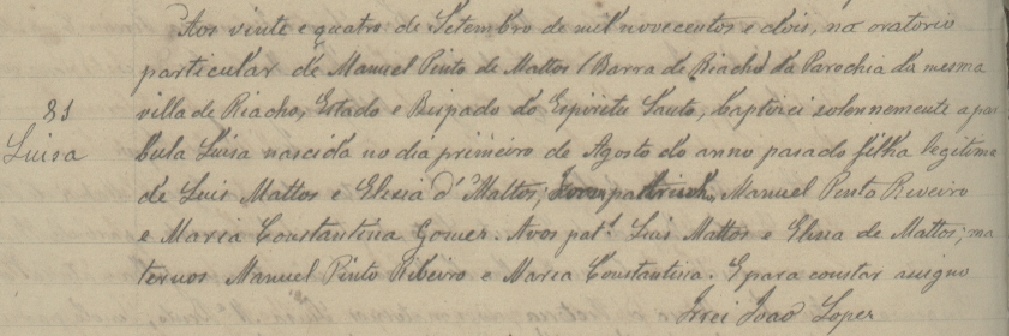 Aos vinte e quatro de Setembro de mil novecentos e dois, no oratorio
particular de Manuel Pinto de Mattos (Barra de Riacho) da Parochia da mesma
81
villa de Riacho, Estado e Bispado do Espirito Santo, baptisei solennemente a par
Luisa
bula Luisa nascida no dia primeiro de Agosto do anno pasado filha legitima
de Luis Mattos e Elesia d'Mattos; Manuel Pinto Reveiro
e Maria Constantina Gomes. Avos pat.s Luis Mattos e Elesia de Mattos; ma
ternos Manuel Pinto Ribeiro e Maria Constantina. E para constar asigno
Frei Joaõ Lopes